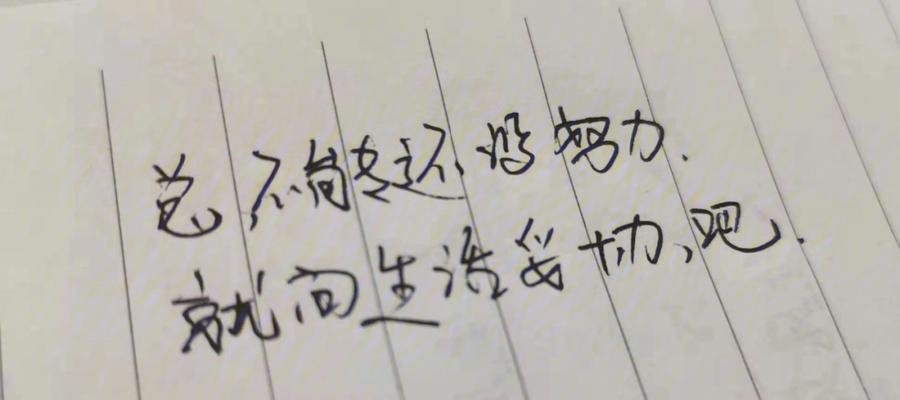 总不能还没努力.
就向生活妥协吧.